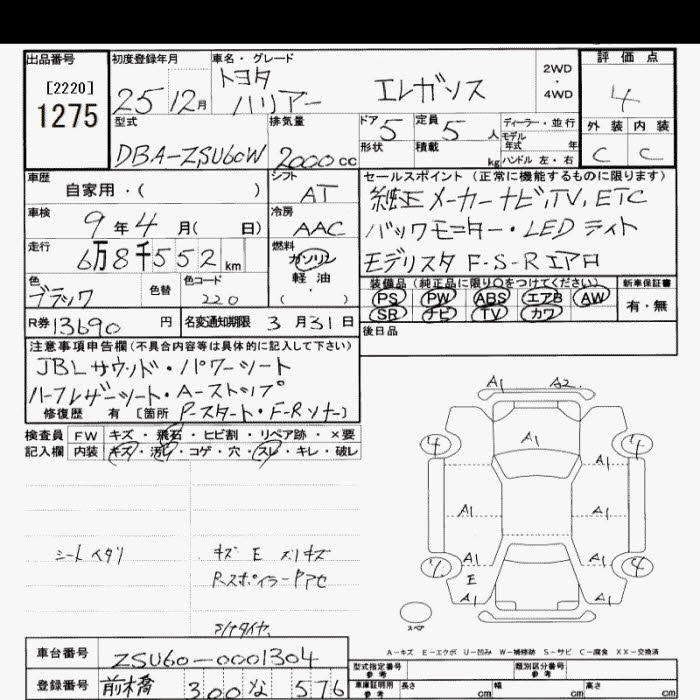 出品番号 初度登録年月 車名・グレード 評価点
[2220] トヨタ 2WD
1275 25 12月 ハリアー エレガンス ・ 4
4WD
型式 排気量 ドア 5 定員 5人 ディーラー・並行 外装 内装
DBA-ZSU60W 2000cc 形状 積載 kg モデル年式 年 C C
ハンドル 左・右
車歴 シフト セールスポイント (正常に機能するものに限ります)
自家用・( ) AT 純正メーカーナビ,TV,ETC
車検 冷房 バックモニター・LEDライト
9年4月( 日) AAC モデリスタ F-S-Rエアロ
走行 燃料
6万8千552km ガソリン
軽油
( ・ )
色 色替 色コード 装備品(純正品に限り○をつけてください) 新車保証書
ブラック 220 PS PW ABS エアB AW 有・無
SR ナビ TV カワ
R券 13690円 名変通知期限 3月31日 後日品
注意事項申告欄(不具合内容等は具体的に記入して下さい)
JBLサウンド・パワーシート
ハーフレザーシート・A-ストップ
修復歴 有 [箇所 P-スタート・F-Rソナー]
検査員 FW キズ・飛石・ヒビ割・リペア跡・×要
記入欄 内装 キズ・汚れ・コゲ・穴・スレ・キレ・破レ
A1 A2
4 A1 4
A1 A1
A1 A1
E
A1 A1
4
シートイタリ キズ E スリキズ
Rスポイラー
スペア
A-キズ E-エクボ U-凹み W-補修跡 S-サビ C-腐食 XX-交換済
車台番号 ZSU60-0001304 型式指定番号 参考 類別区分番号 参考
登録番号 前木橋 300 576 車庫証明用 参考 長さ cm 幅 cm 高さ cm